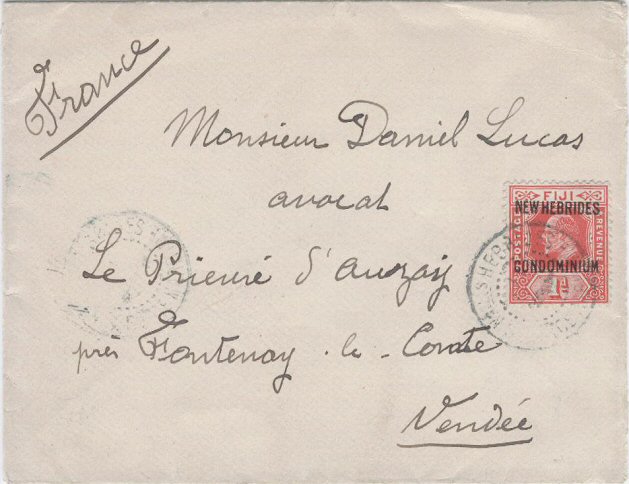 France
Monsieur Daniel Lucas
avocat
Le Prieuré d'Auzay
près Fontenay-le-Comte
Vendée
FIJI
NEW HEBRIDES
POSTAGE
REVENUE
CONDOMINIUM
1D